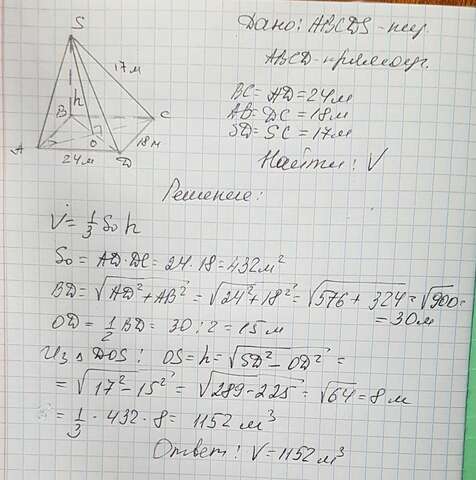 S
17 м
B
h
C
O
18 м
A
24 м
D
Дано: ABCDS - пир.
ABCD - прямоуг.
BC = AD = 24 м
AB = DC = 18 м
SD = SC = 17 м
Найти: V
Решение:
V = 1/3 So h
So = AD · DC = 24 · 18 = 432 м²
BD = √AD² + AB² = √24² + 18² = √576 + 324 = √900 =
= 30 м
OD = 1/2 BD = 30 : 2 = 15 м
Из Δ DOS: OS = h = √SD² - OD² =
= √17² - 15² = √289 - 225 = √64 = 8 м
= 1/3 · 432 · 8 = 1152 м³
Ответ: V = 1152 м³